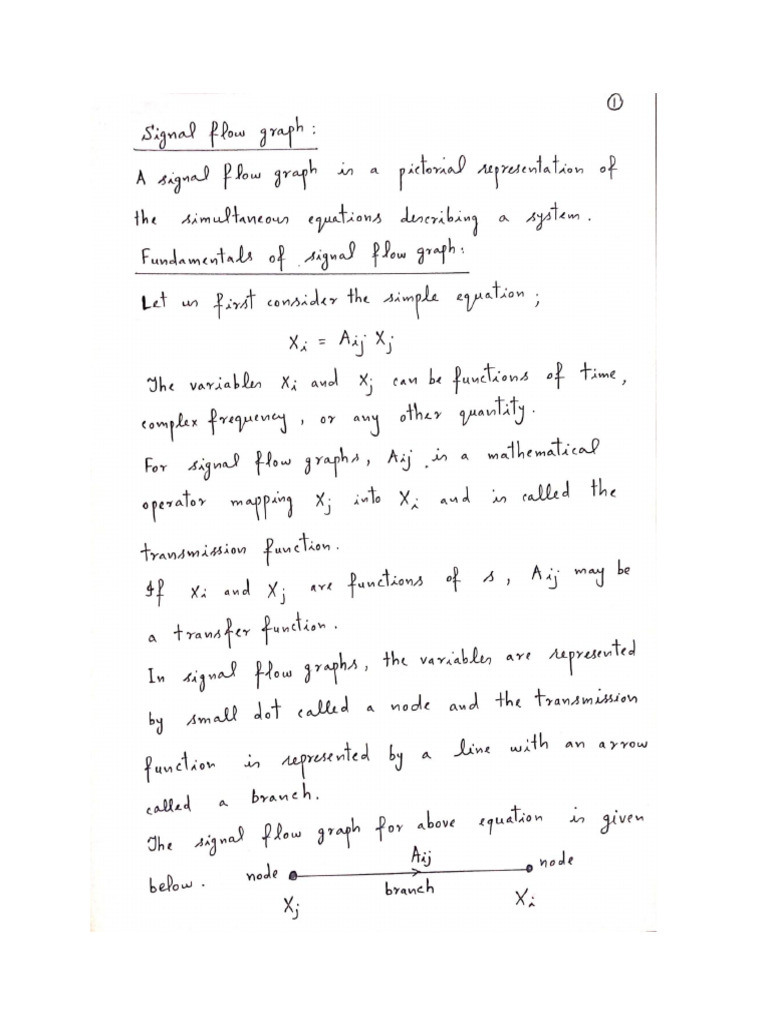 ①
Signal flow graph:
A signal flow graph is a pictorial representation of
the simultaneous equations describing a system.
Fundamentals of signal flow graph:
Let us first consider the simple equation;
Xi = Aij Xj
The variables Xi and Xj can be functions of time,
complex frequency, or any other quantity.
For signal flow graphs, Aij is a mathematical
operator mapping Xj into Xi and is called the
transmission function.
If Xi and Xj are functions of s, Aij may be
a transfer function.
In signal flow graphs, the variables are represented
by small dot called a node and the transmission
function is represented by a line with an arrow
called a branch.
The signal flow graph for above equation is given
below. node Aij node
branch
Xj Xi